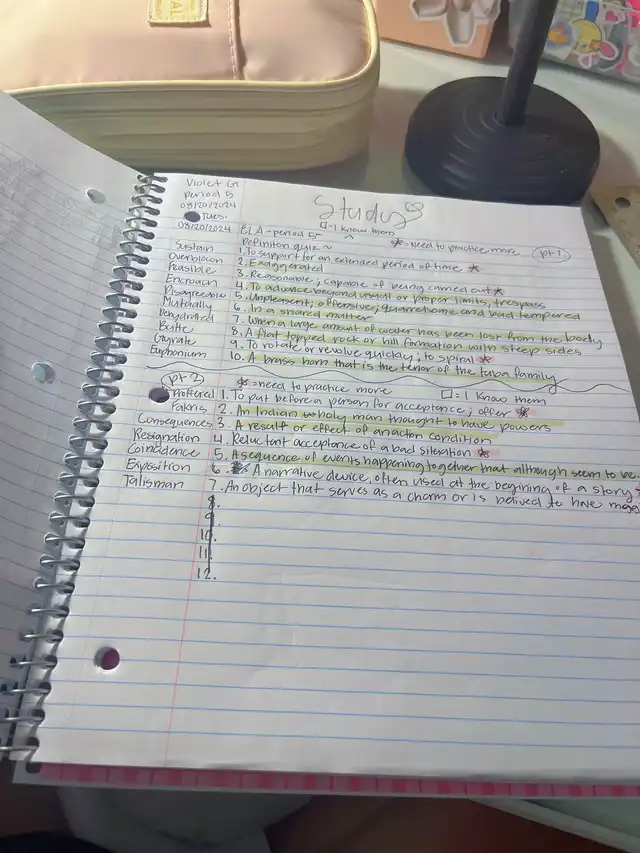 AL
Violet G
period 5
08/20/2024
Tues.
Study
08/20/2024 ELA-period 5
□=I know them
*=Need to practice more
pt 1.
Definition quiz ~
Sustain 1. To support for an extended period of time *
Overblown 2. Exaggerated
Feasible 3. Reasonable; capable of being carried out *
Encroach 4. To advance beyond usual or proper limits, trespass
Disagreeable 5. Unpleasent; offensive; quarrelsome and bad tempered
Mutually 6. In a shared matter
Dehydrated 7. When a large amount of water has been lost from the body
Butte 8. A flat topped rock or hill formation with steep sides
Gyrate 9. To rotate or revolve quickly; to spiral *
Euphonium 10. A brass horn that is the tenor of the tuba family
pt 2
*=need to practice more □=I know them
Proffered 1. To put before a person for acceptance; offer *
Fakris 2. An Indian wholy man thought to have powers
Consequences 3. A result or effect of an action condition
Resignation 4. Reluctant acceptance of a bad situation *
Coincidence 5. A sequence of events happening together that although seem to be
Exposition 6. A narrative device, often used at the begining of a story
Talisman 7. An object that serves as a charm or is belived to have
8.
9.
10.
11.
12.